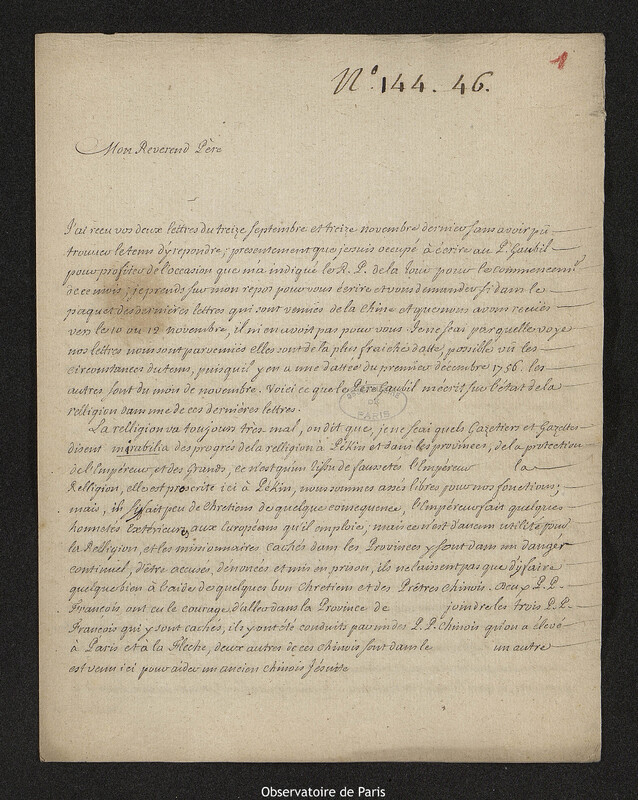 1
N° 144. 46.
Mon Reverend Père
J'ai receu vos deux lettres du treize septembre et treize novembre dernier sans avoir pû
trouver le tems d'y repondre, presentement que je suis occupé à écrire au P. Gaubil
pour profiter de l'occasion que m'a indiqué le R. P. de la Tour pour le commencemt.
de ce mois, je prends sur mon repos pour vous écrire et vous demander si dans le
paquet des dernières lettres qui sont venües de la Chine et que nous avons receües
vers le 10 ou 12 novembre, il n'i en avoit pas pour vous. Je ne scai par quelle voye
nos lettres nous sont parvenües elles sont de la plus fraiche datte, possible vû les
circonstances du tems, puisqu'il y en a une dattée du premier decembre 1756. les
autres sont du mois de novembre. Voici ce que le Père Gaubil m'écrit sur l'état de la
relligion dans une de ces dernières lettres.
La relligion va toujours tres mal, on dit que, je ne scai quels Gazetiers et Gazettes
disent mirabilia des progrés de la relligion à Pékin et dans les provinces, de la protection
de l'Empéreur et des Grands, ce n'est qu'un tissu de faussetés l'Empéreur la
Relligion, elle est proscrite ici à Pékin, nous sommes assés libres pour nos fonctions;
mais, il se fait peu de Chretiens de quelque consequence, l'Empéreur fait quelques
honnetés exterieures aux Européans qu'il emploie, mais ce n'est d'aucun utilité pour
la Relligion, et les missionnaires cachés dans les Provinces y sont dans un danger
continuel, d'être accusés, dénoncés et mis en prison, ils ne laissent pas que d'y faire
quelque bien à l'aide de quelques bon Chretiens et des Prêtres chinois. Deux P.P.
François ont eu le courage d'aller dans la Province de joindre les trois P.P.
François qui y sont cachés, ils y ont été conduits par un des P.P. Chinois qu'on a élevé
à Paris et à la Fleche, deux autres de ces chinois sont dans le un autre
est venu ici pour aider un ancien chinois Jésuite
OBSERVATOIRE
DE
PARIS
Observatoire de Paris